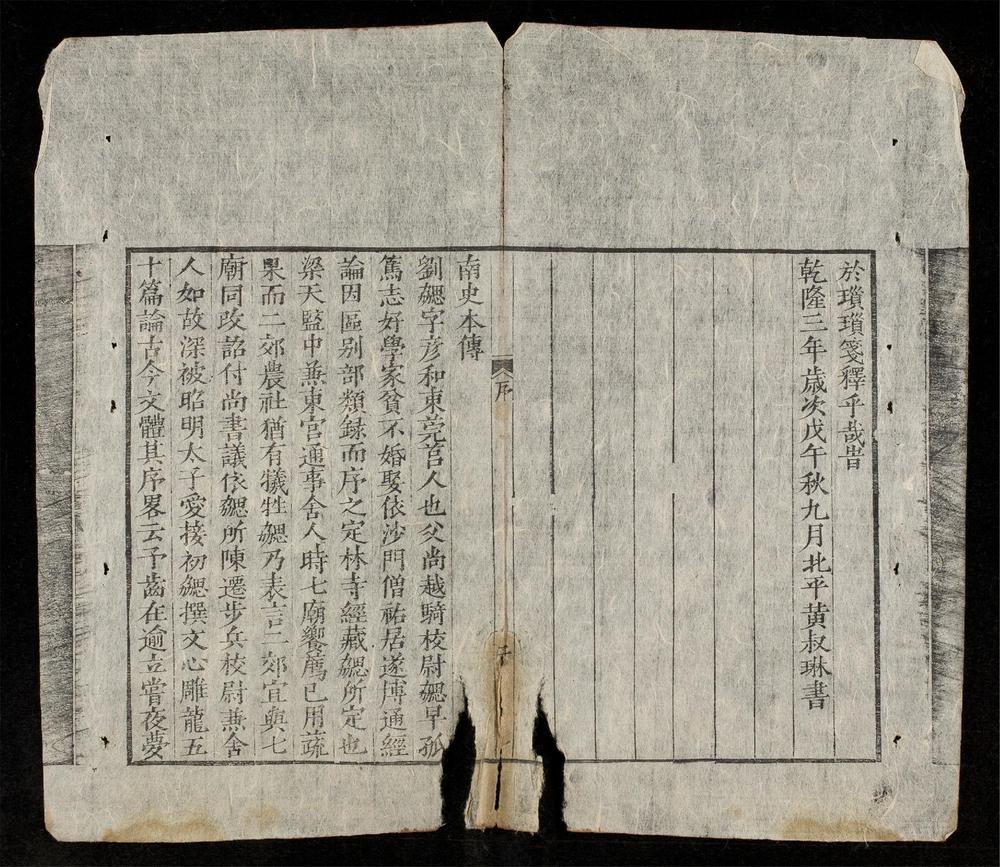 於瑣瑣箋釋乎哉旹
乾隆三年歲次戊午秋九月北平黃叔琳書
南史本傳
劉勰字彥和東莞莒人也父尚越騎校尉勰早孤
篤志好學家貧不婚娶依沙門僧祐居遂博通經
論因區别部類錄而序之定林寺經藏勰所定也
梁天監中兼東宮通事舍人時七廟饗薦已用蔬
果而二郊農社猶有犧牲勰乃表言二郊宜與七
廟同改詔付尚書議依勰所陳遷步兵校尉兼舍
人如故深被昭明太子愛接初勰撰文心雕龍五
十篇論古今文體其序畧云予齒在逾立嘗夜夢